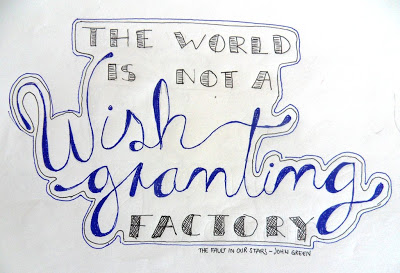 THE WORLD
IS NOT A
Wish
granting
FACTORY
THE FAULT IN OUR STARS - JOHN GREEN